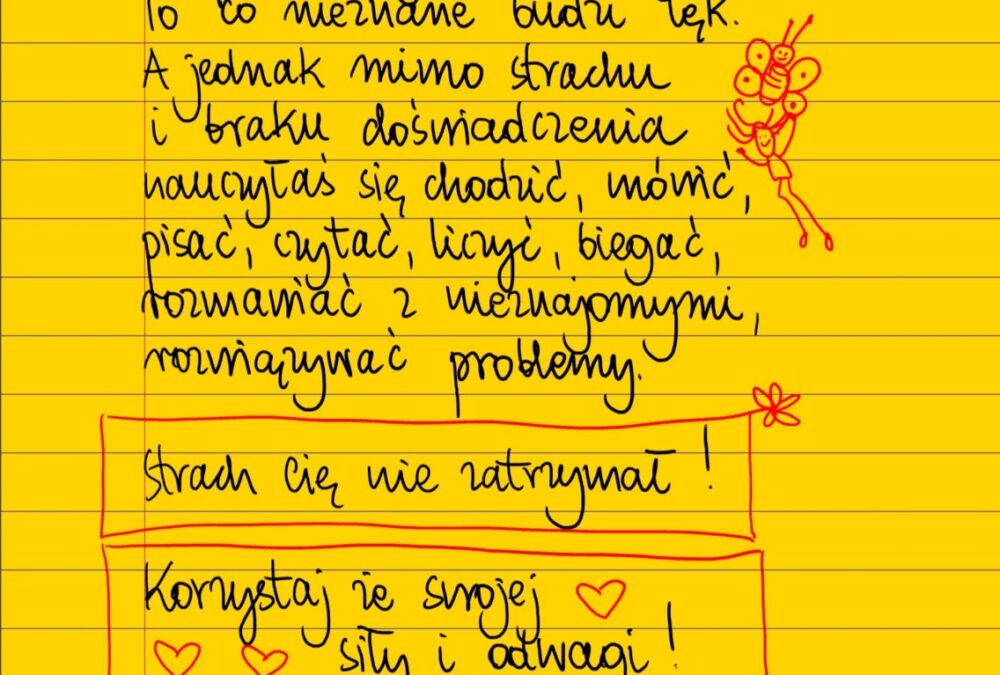 To co nieznane budzi lęk.
A jednak mimo strachu
i braku doświadczenia
nauczyłaś się chodzić, mówić,
pisać, czytać, liczyć, biegać,
rozmawiać z nieznajomymi,
rozwiązywać problemy.
Strach Cię nie zatrzymał!
Korzystaj ze swojej
siły i odwagi!